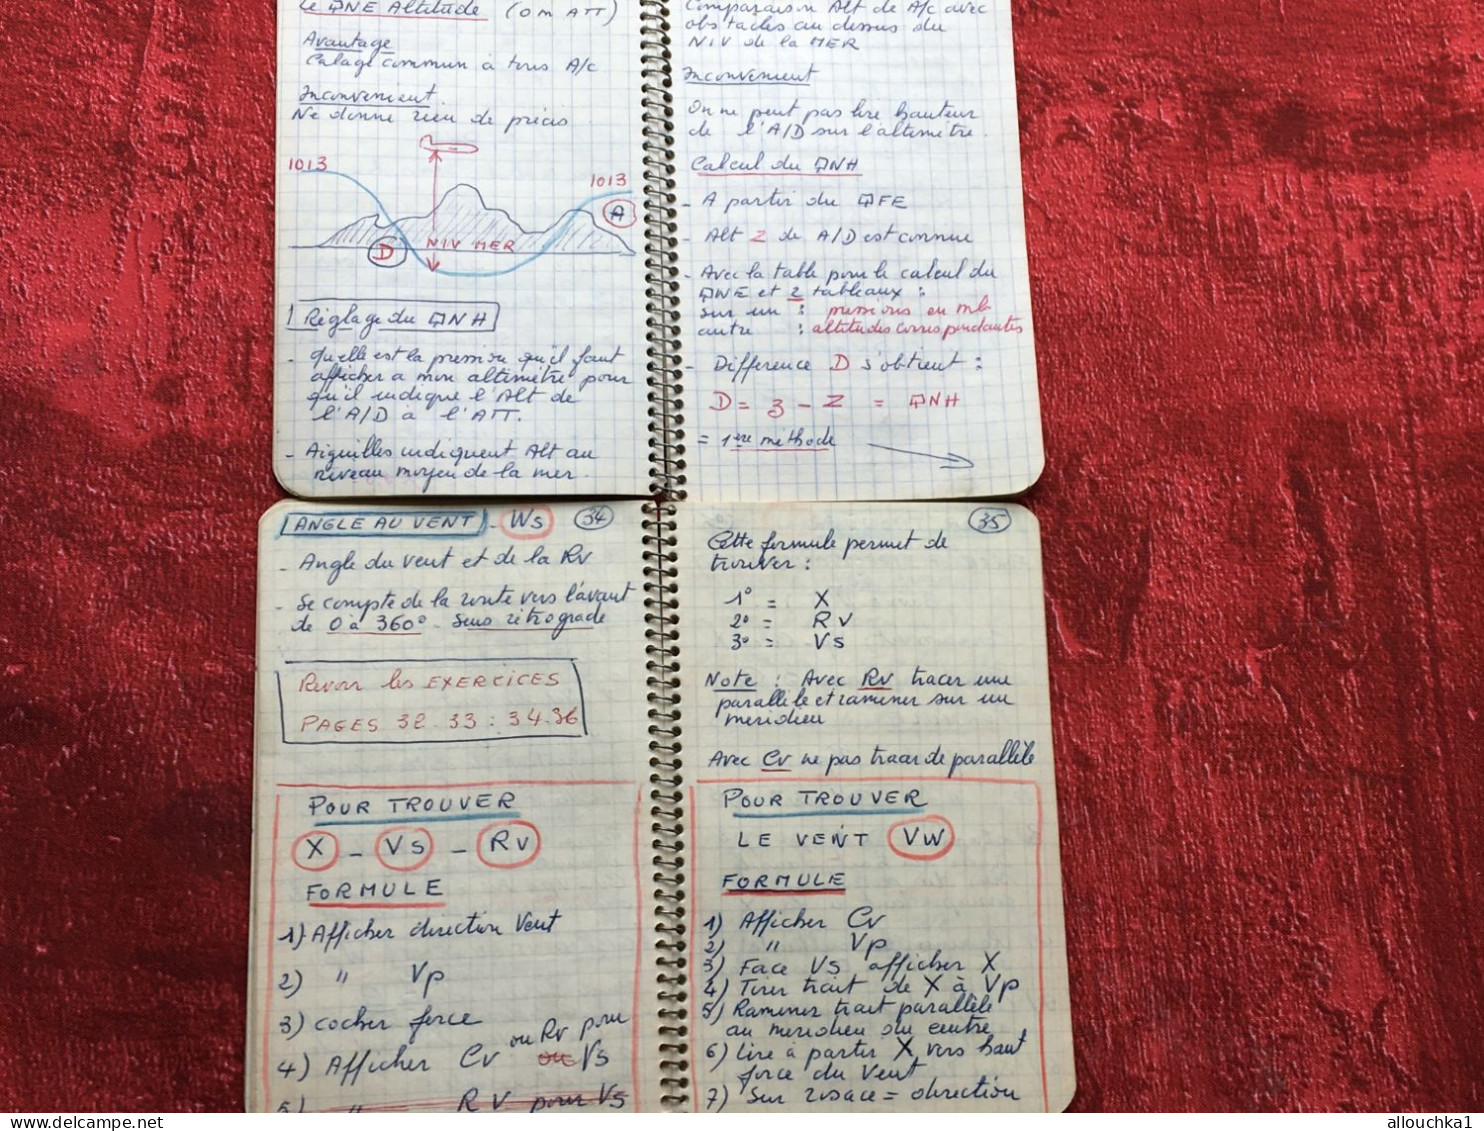 le QNE Altitude (0 m ATT)
Avantage
Calage commun à tous A/c
Inconvenient
Ne donne rien de précis
1013
1013
A
D
NIV MER
Réglage du QNH
- Quelle est la pression qu'il faut
afficher a mon altimètre pour
qu'il indique l'Alt de
l'A/D à l'ATT.
- Aiguilles indiquent Alt au
niveau moyen de la mer.
Comparaison Alt de A/c avec
obstacles au dessus du
NIV de la MER
Inconvenient
On ne peut pas lire hauteur
de l'A/D sur l'altimètre.
Calcul du QNH
- A partir du QFE
- Alt Z de A/D est connue
- Avec la table pour le calcul du
QNE et 2 tableaux :
sur un : pressions en mb
autre : altitudes correspondantes
- Difference D s'obtient :
D = 3 - Z = QNH
= 1ere méthode
ANGLE AU VENT - Ws 34
- Angle du vent et de la Rv
- Se compte de la route vers l'avant
de 0 à 360° - Sens rétrograde
Revoir les EXERCICES
PAGES 32.33 : 34.36
POUR TROUVER
X - Vs - Rv
FORMULE
1) Afficher direction Vent
2) " Vp
3) cocher force
4) Afficher Cv ou Rv pour
ou Vs
5) " RV pour Vs
35
Cette formule permet de
trouver :
1° = X
2° = RV
3° = Vs
Note : Avec Rv tracer une
parallèle et ramener sur un
meridien
Avec Cv ne pas tracer de parallèle
POUR TROUVER
LE VENT VW
FORMULE
1) Afficher Cv
2) " Vp
3) Face Vs afficher X
4) Tirer trait de X à Vp
5) Ramener trait parallèle
au meridien du centre
6) Lire à partir X vers haut
force du Vent
7) Sur rosace = direction
www.delcampe.net
allouchka1